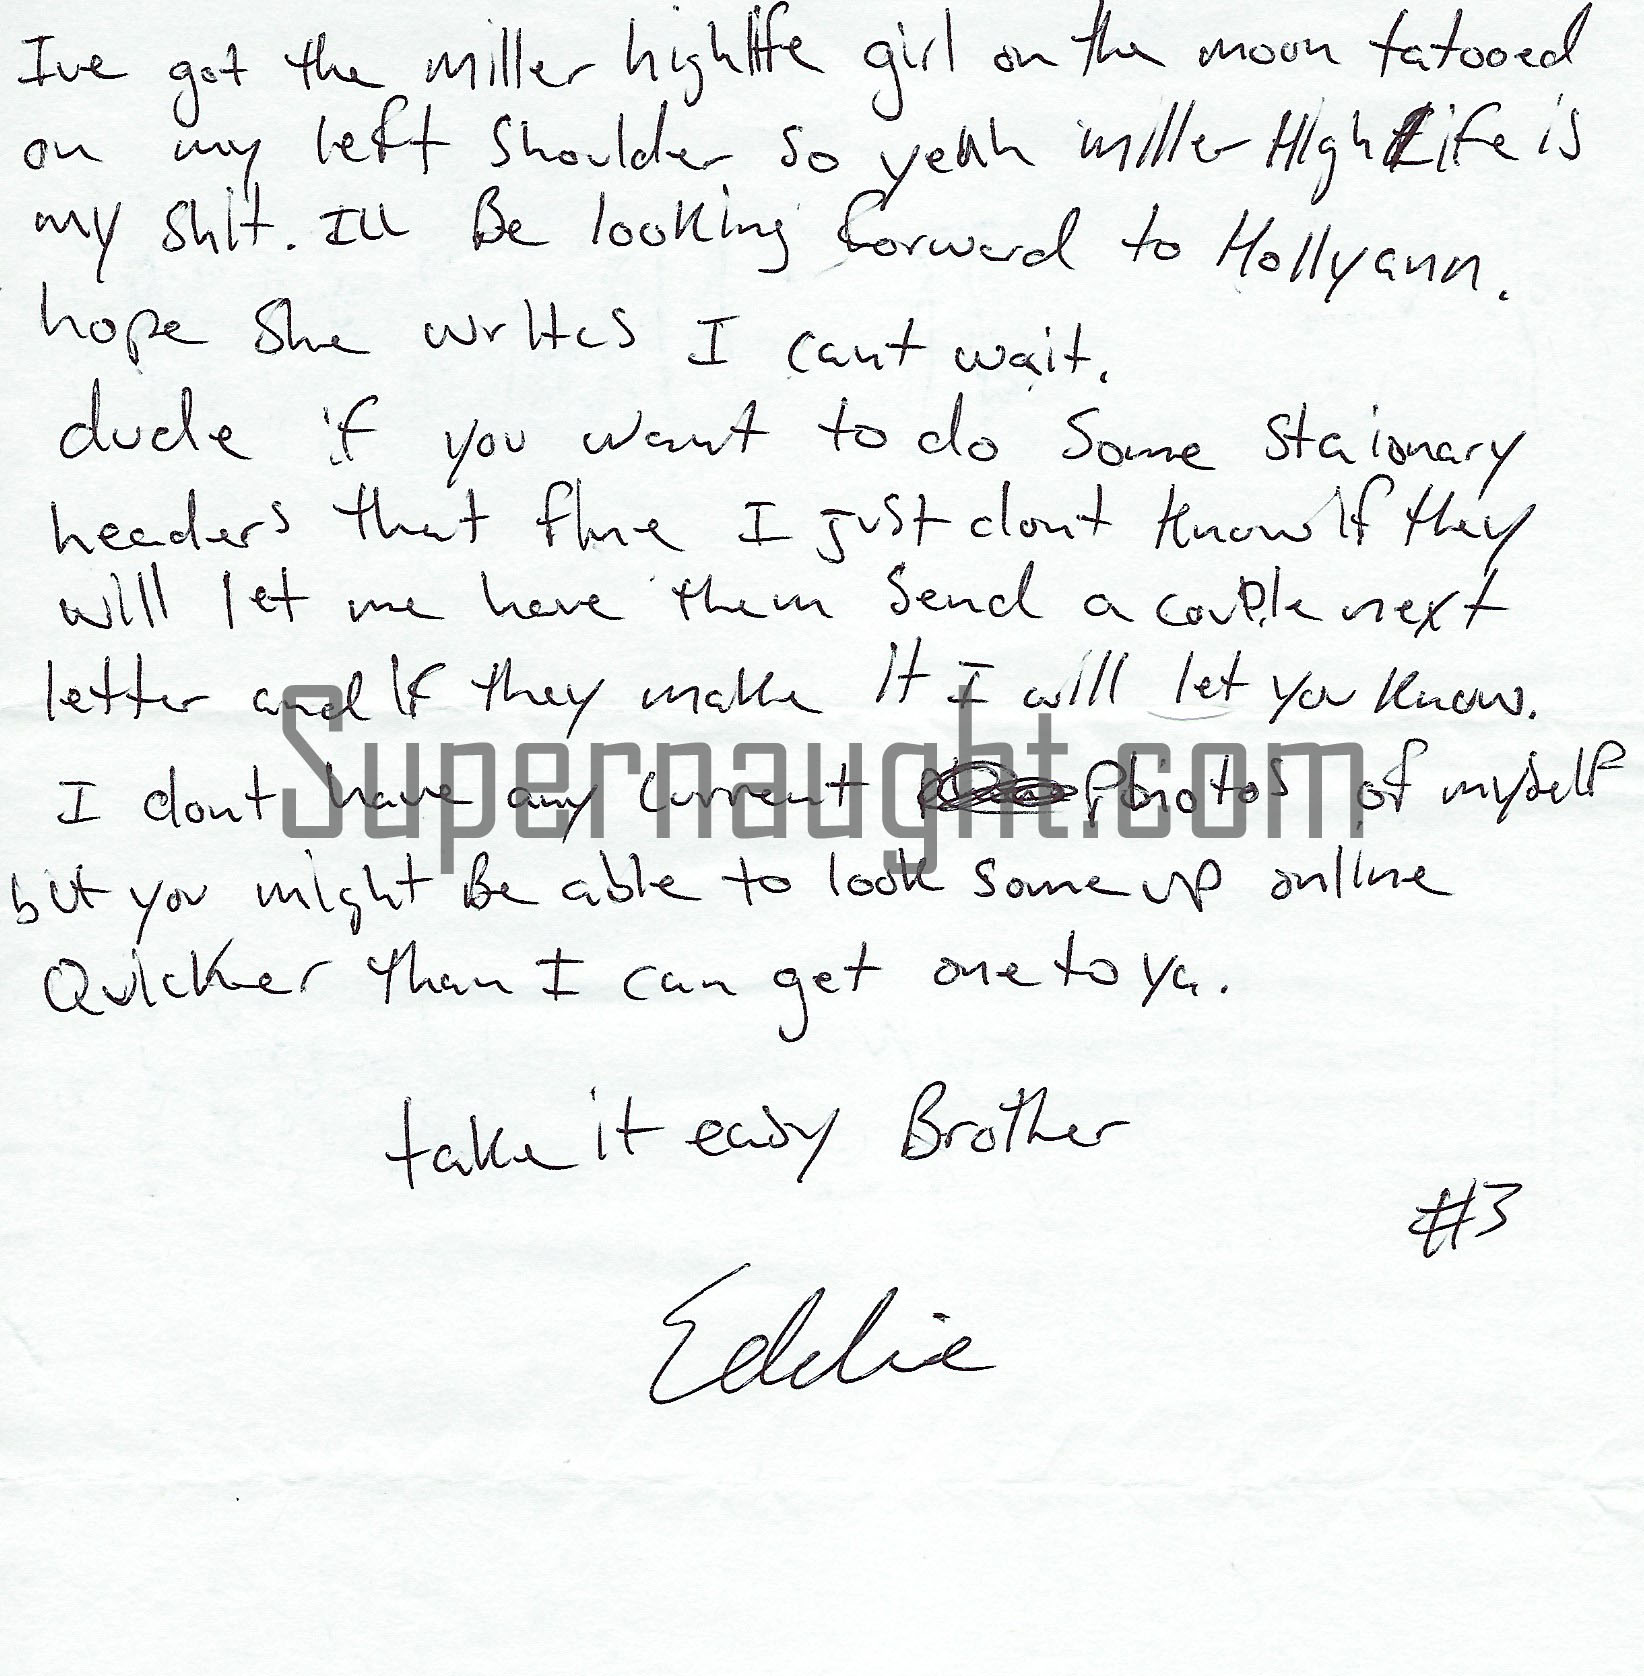 Ive got the miller highlife girl on the moon tatooed
on my left shoulder so yeah miller HighLife is
my shit. Ill Be looking forward to Hollyann.
hope she writes I cant wait.
dude if you want to do some staionary
headers that fine I just dont know if they
will let me have them send a couple next
letter and if they make it I will let you know.
I dont have any current Photos of myself
but you might Be able to look some up online
Quicker than I can get one to ya.
take it easy Brother
#3
Eddie
Supernaught.com